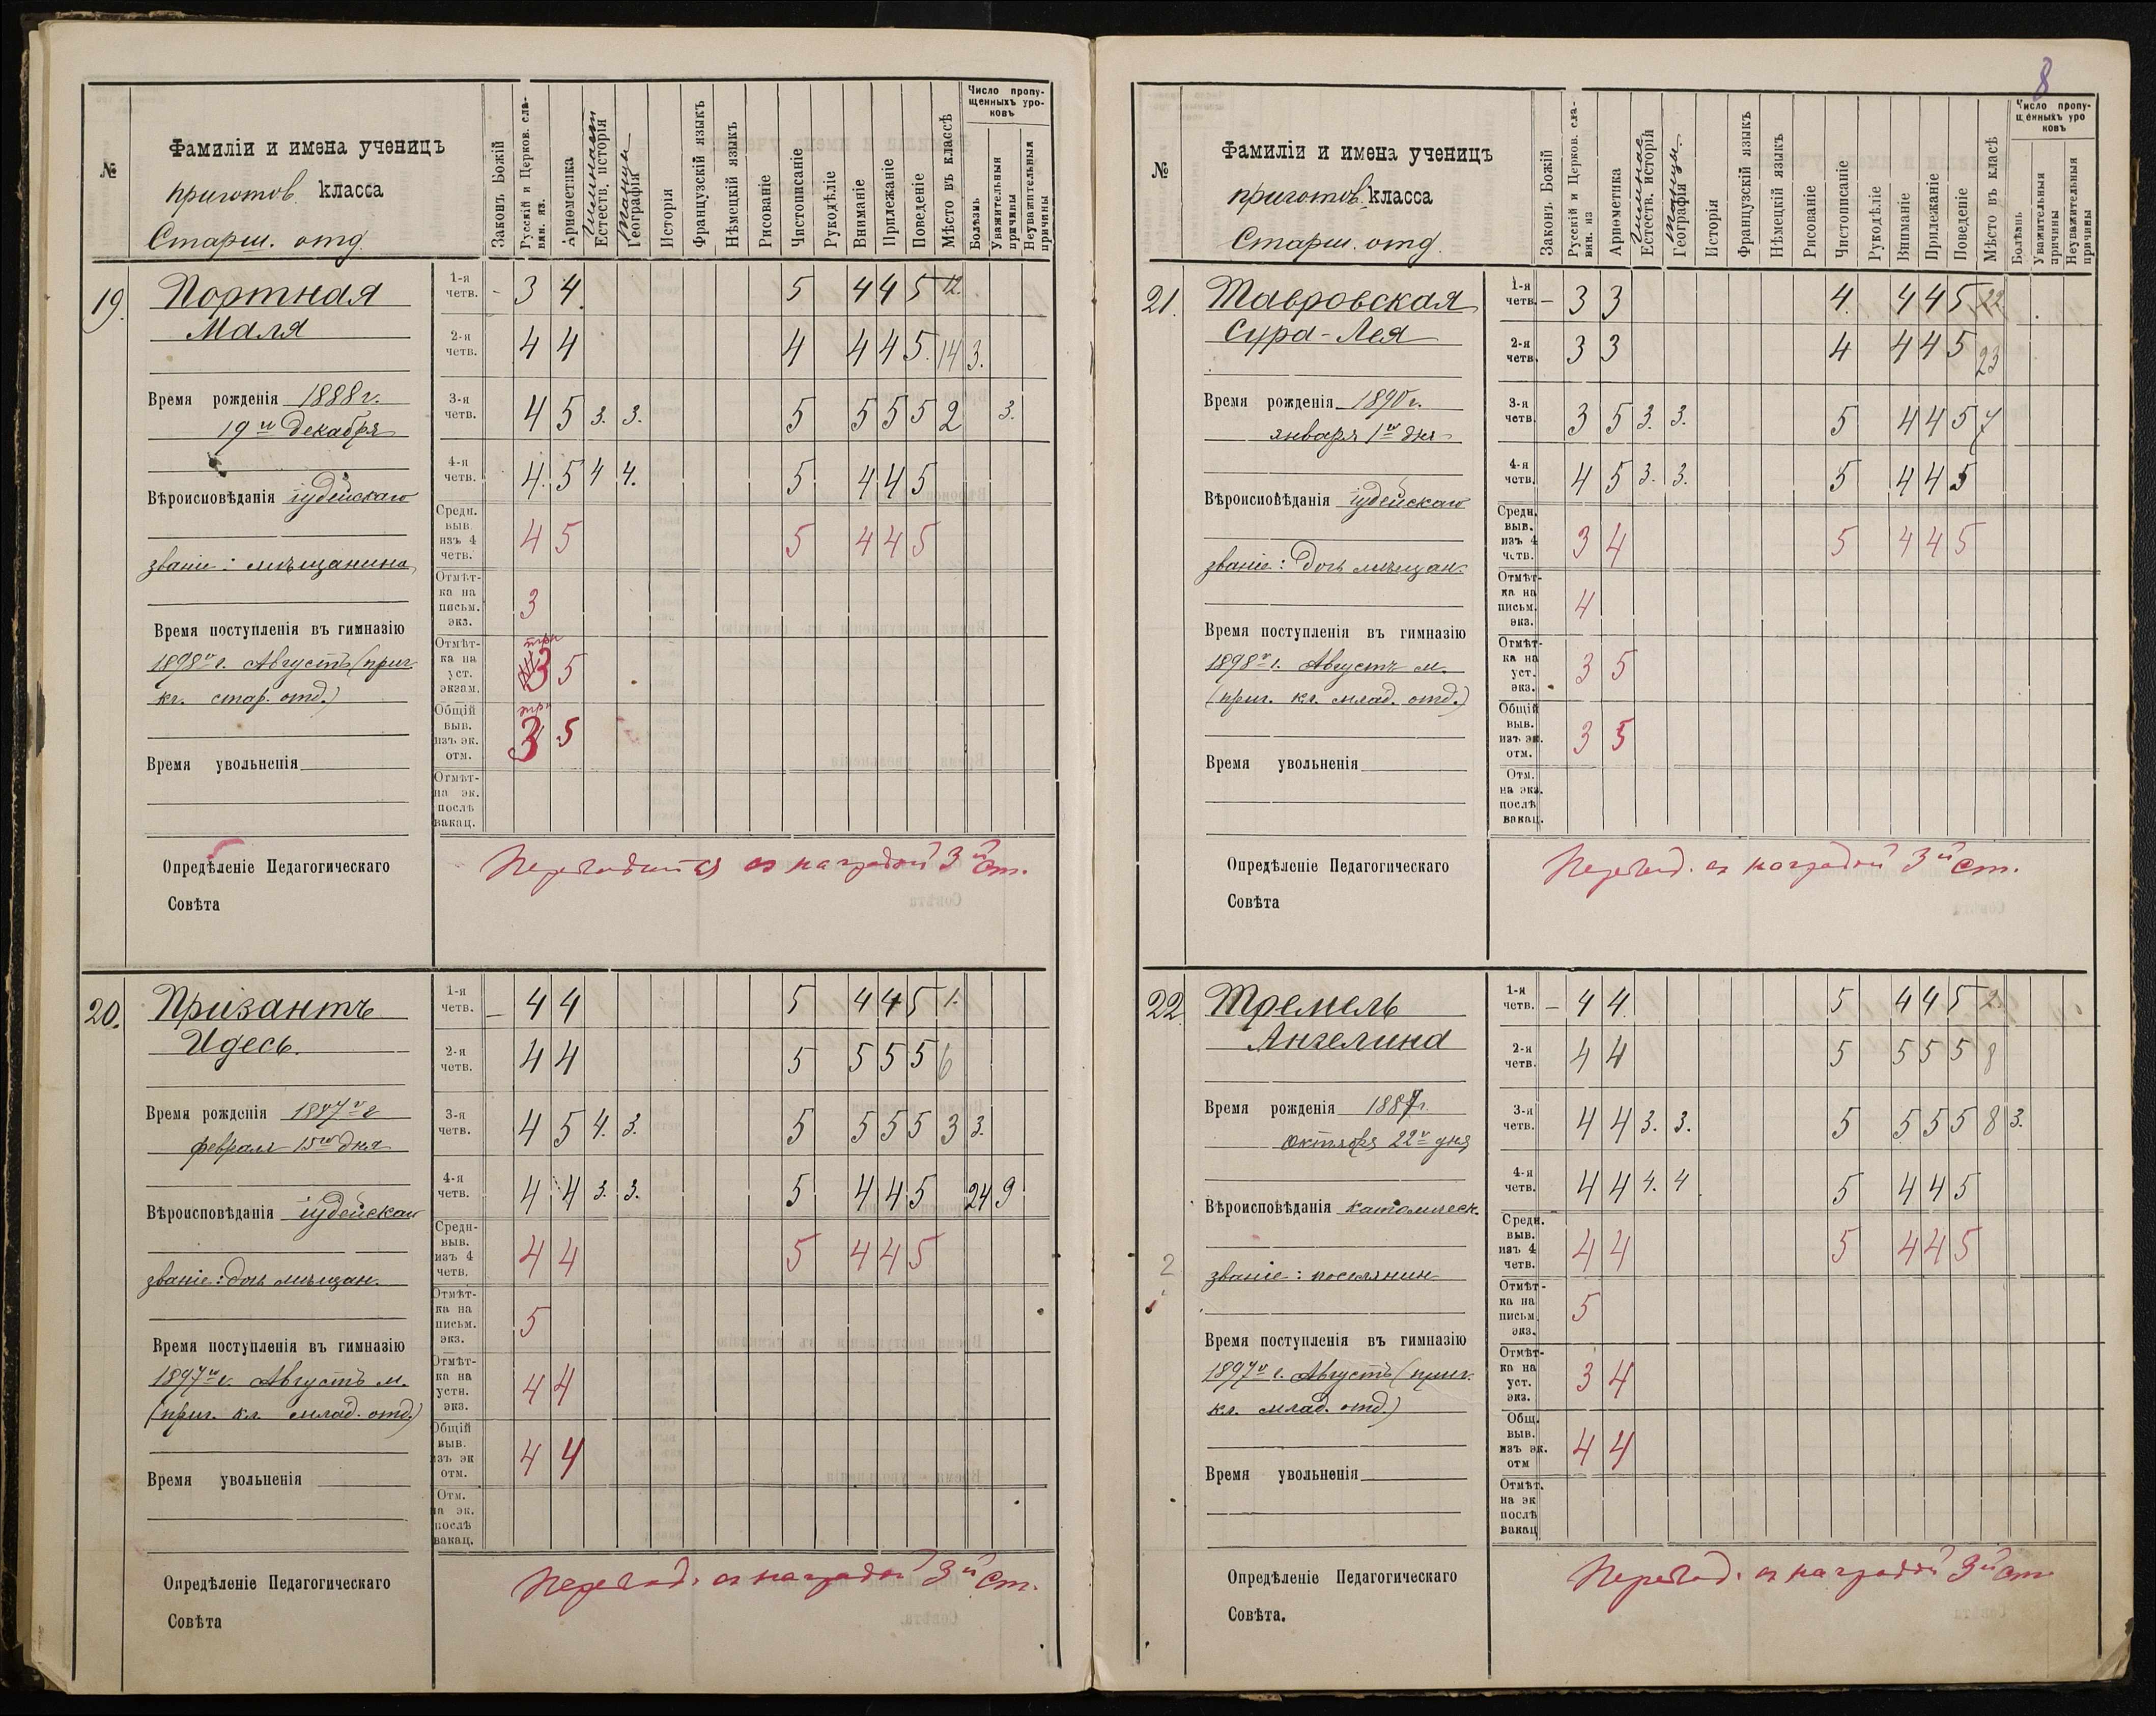 №
Фамиліи и имена ученицъ
приготов. класса
Старш. отд.
Законъ Божій
Русскій и Церков. сла-
вян. яз.
Ариѳметика
Гимнаст
Естеств. исторія
Танцы
Географія
Исторія
Французскій языкъ
Нѣмецкій языкъ
Рисованіе
Чистописаніе
Рукодѣліе
Вниманіе
Прилежаніе
Поведеніе
Мѣсто въ классѣ
Число пропу-
щенныхъ уро-
ковъ
Болѣзнь
Уважительныя
причины
Неуважительныя
причины
19.
Портная
Маля
Время рожденія 1888 г.
19го Декабря
Вѣроисповѣданія іудейскаго
званіе: мѣщанина
Время поступленія въ гимназію
1898го г. Августъ (приг.
кл. стар. отд.)
Время увольненія
1-я четв. – 3 4 5 4 4 5 12.
2-я четв. 4 4 4 4 4 5. 14 3.
3-я четв. 4 5 3. 3. 5 5 5 5 2 3.
4-я четв. 4. 5 4 4. 5 4 4 5
Средн. выв. изъ 4 четв. 4 5 5 4 4 5
Отмѣт-ка на письм. экз. 3
Отмѣт-ка на уст. экзам. три 3 5
Общій выв. изъ эк. отм. три 3 5
Отмѣт-на эк. послѣ вакац.
Опредѣленіе Педагогическаго
Совѣта
Переводится съ наградой 3й ст.
20.
Призантъ
Идесь.
Время рожденія 1887го г
февраля 15го дня
Вѣроисповѣданія іудейскаго
званіе: дочь мѣщан.
Время поступленія въ гимназію
1897го г. Августъ м.
(приг. кл. млад. отд.)
Время увольненія
1-я четв. – 4 4 5 4 4 5 1.
2-я четв. 4 4 5 5 5 5 6
3-я четв. 4 5 4. 3. 5 5 5 5 3 3.
4-я четв. 4 4 3. 3. 5 4 4 5 24 9
Средн-выв. изъ 4 четв. 4 4 5 4 4 5
Отмѣт-ка на письм. экз. 5
Отмѣт-ка на устн. экз. 4 4
Общій выв. изъ эк отм. 4 4
Отм. на эк. послѣ вакац.
Опредѣленіе Педагогическаго
Совѣта
Перевод. съ наградой 3й ст.
8
№
Фамиліи и имена ученицъ
приготов. класса
Старш. отд.
Законъ Божій
Русскій и Церков. сла-
вян. яз
Ариѳметика
Гимнас
Естеств. исторія
Танцы.
Географія
Исторія
Французскій языкъ
Нѣмецкій языкъ
Рисованіе
Чистописаніе
Рукодѣліе
Вниманіе
Прилежаніе
Поведеніе
Мѣсто въ класѣ
Число пропу-
щенныхъ уро
ковъ
Болѣзнь
Уважительныя
причины
Неуважительныя
причины
21.
Тавровская
Сура-Лея
Время рожденія 1890 г.
января 1го дня
Вѣроисповѣданія іудейскаго
званіе: дочь мѣщан.
Время поступленія въ гимназію
1898го г. Августъ м.
(приг. кл. млад. отд.)
Время увольненія
1-я четв. – 3 3 4. 4 4 5 22
2-я четв. 3 3 4 4 4 5 23
3-я четв. 3 5 3. 3. 5 4 4 5 7
4-я четв. 4 5 3. 3. 5 4 4 5
Средн. выв. изъ 4 четв. 3 4 5 4 4 5
Отмѣт-ка на письм. экз. 4
Отмѣт-ка на уст. экз. 3 5
Общій выв. изъ эк. отм. 3 5
Отм. на экз. послѣ вакац.
Опредѣленіе Педагогическаго
Совѣта
Перевод. съ наградой 3й ст.
22.
Тремель
Ангелина
Время рожденія 1887 г.
Октября 22го дня
Вѣроисповѣданія католическ.
званіе: поселянин
Время поступленія въ гимназію
1897го г. Августъ (приг.
кл. млад. отд.)
Время увольненія
1-я четв. – 4 4. 5 4 4 5 2.
2-я четв. 4 4 5 5 5 5 8
3-я четв. 4 4 3. 3. 5 5 5 5 8 3.
4-я четв. 4 4 4. 4 5 4 4 5
Средн. выв. изъ 4 четв. 4 4 5 4 4 5
Отмѣт-ка на письм. экз. 5
Отмѣт-ка на уст. экз. 3 4
Общ. выв. изъ эк. отм 4 4
Отмѣт. на эк послѣ вакац
2
Опредѣленіе Педагогическаго
Совѣта.
Перевод. съ наградой 3й ст.